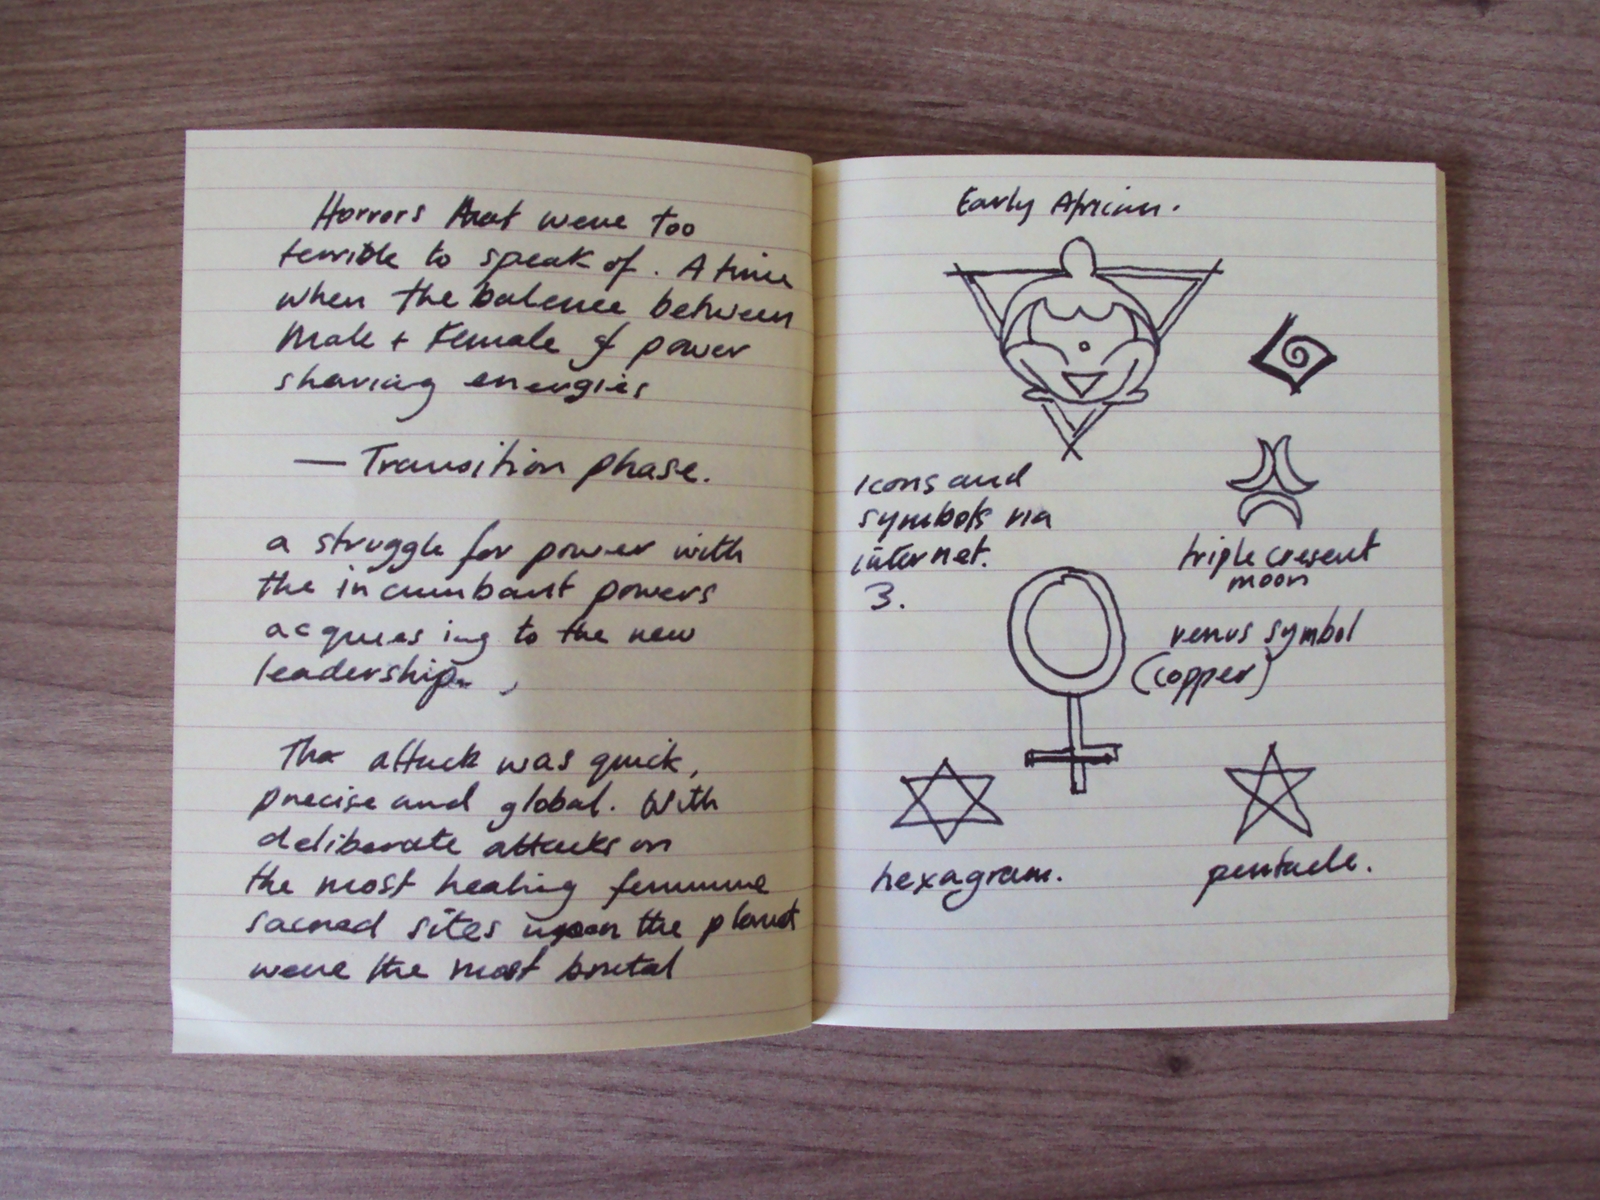 Horrors that were too
terrible to speak of. A time
when the balence between
Male + Female of power
sharing energies
— Transition phase.
a struggle for power with
the incumbant powers
acquiesing to the new
leadership.
The attack was quick,
precise and global. With
deliberate attacks on
the most healing feminine
sacred sites upon the planet
were the most brutal
Early African.
Icons and
symbols via
internet.
3.
triple cresent
moon
venus symbol
(copper)
hexagram.
pentacle.